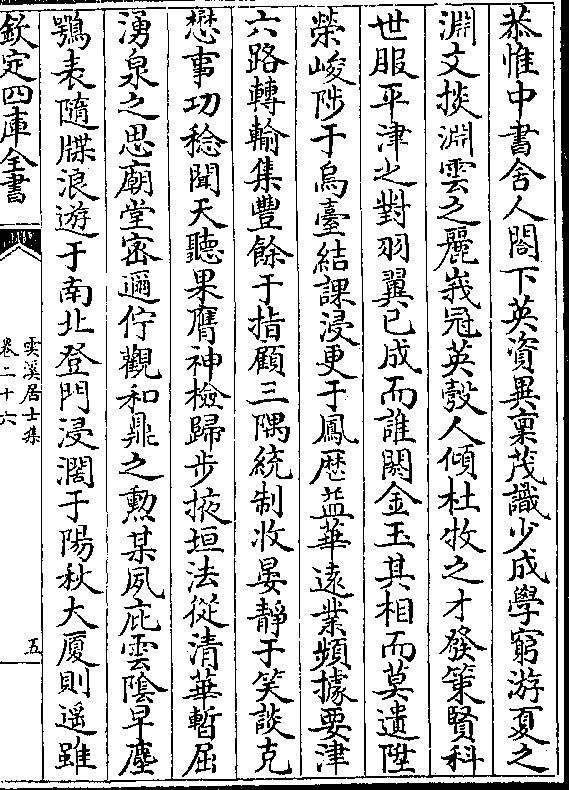 恭惟中書舍人閤下英資異稟茂識少成學窮游夏之
淵文掞淵雲之麗峩冠英彀人傾杜牧之才發策賢科
世服平津之對羽翼已成而誰閼金玉其相而莫遺陞
榮峻陟于烏臺結課浸更于鳳歴益華遠業頻據要津
六路轉輸集豐餘于指顧三隅統制收晏靜于笑談克
懋事功稔聞天聽果膺神檢歸步掖垣法從清華暫屈
湧泉之思廟堂密邇佇觀和鼎之勲某夙庇雲陰早塵
鶚表隨牒浪遊于南北登門浸濶于陽秋大厦則遥雖
欽定四庫全書
雲溪居士集
卷二十六
五